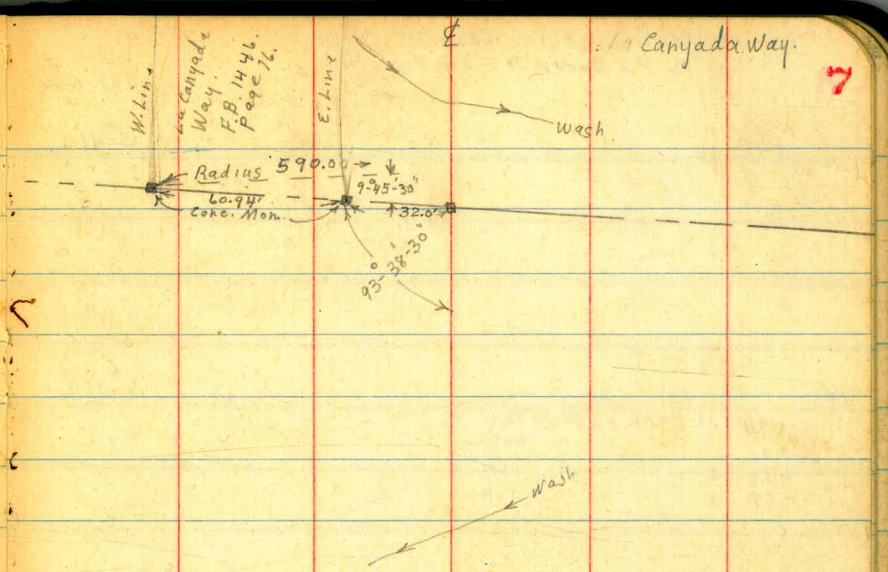 Canyada Way.
7
℄
W. Line
La Canyada
Way.
F.B. 1446.
Page 76.
E. Line
Wash
Radius 590.00
60.94'
Conc. Mon.
9°-45'-30"
32.0'
93°-38'-30"
Wash